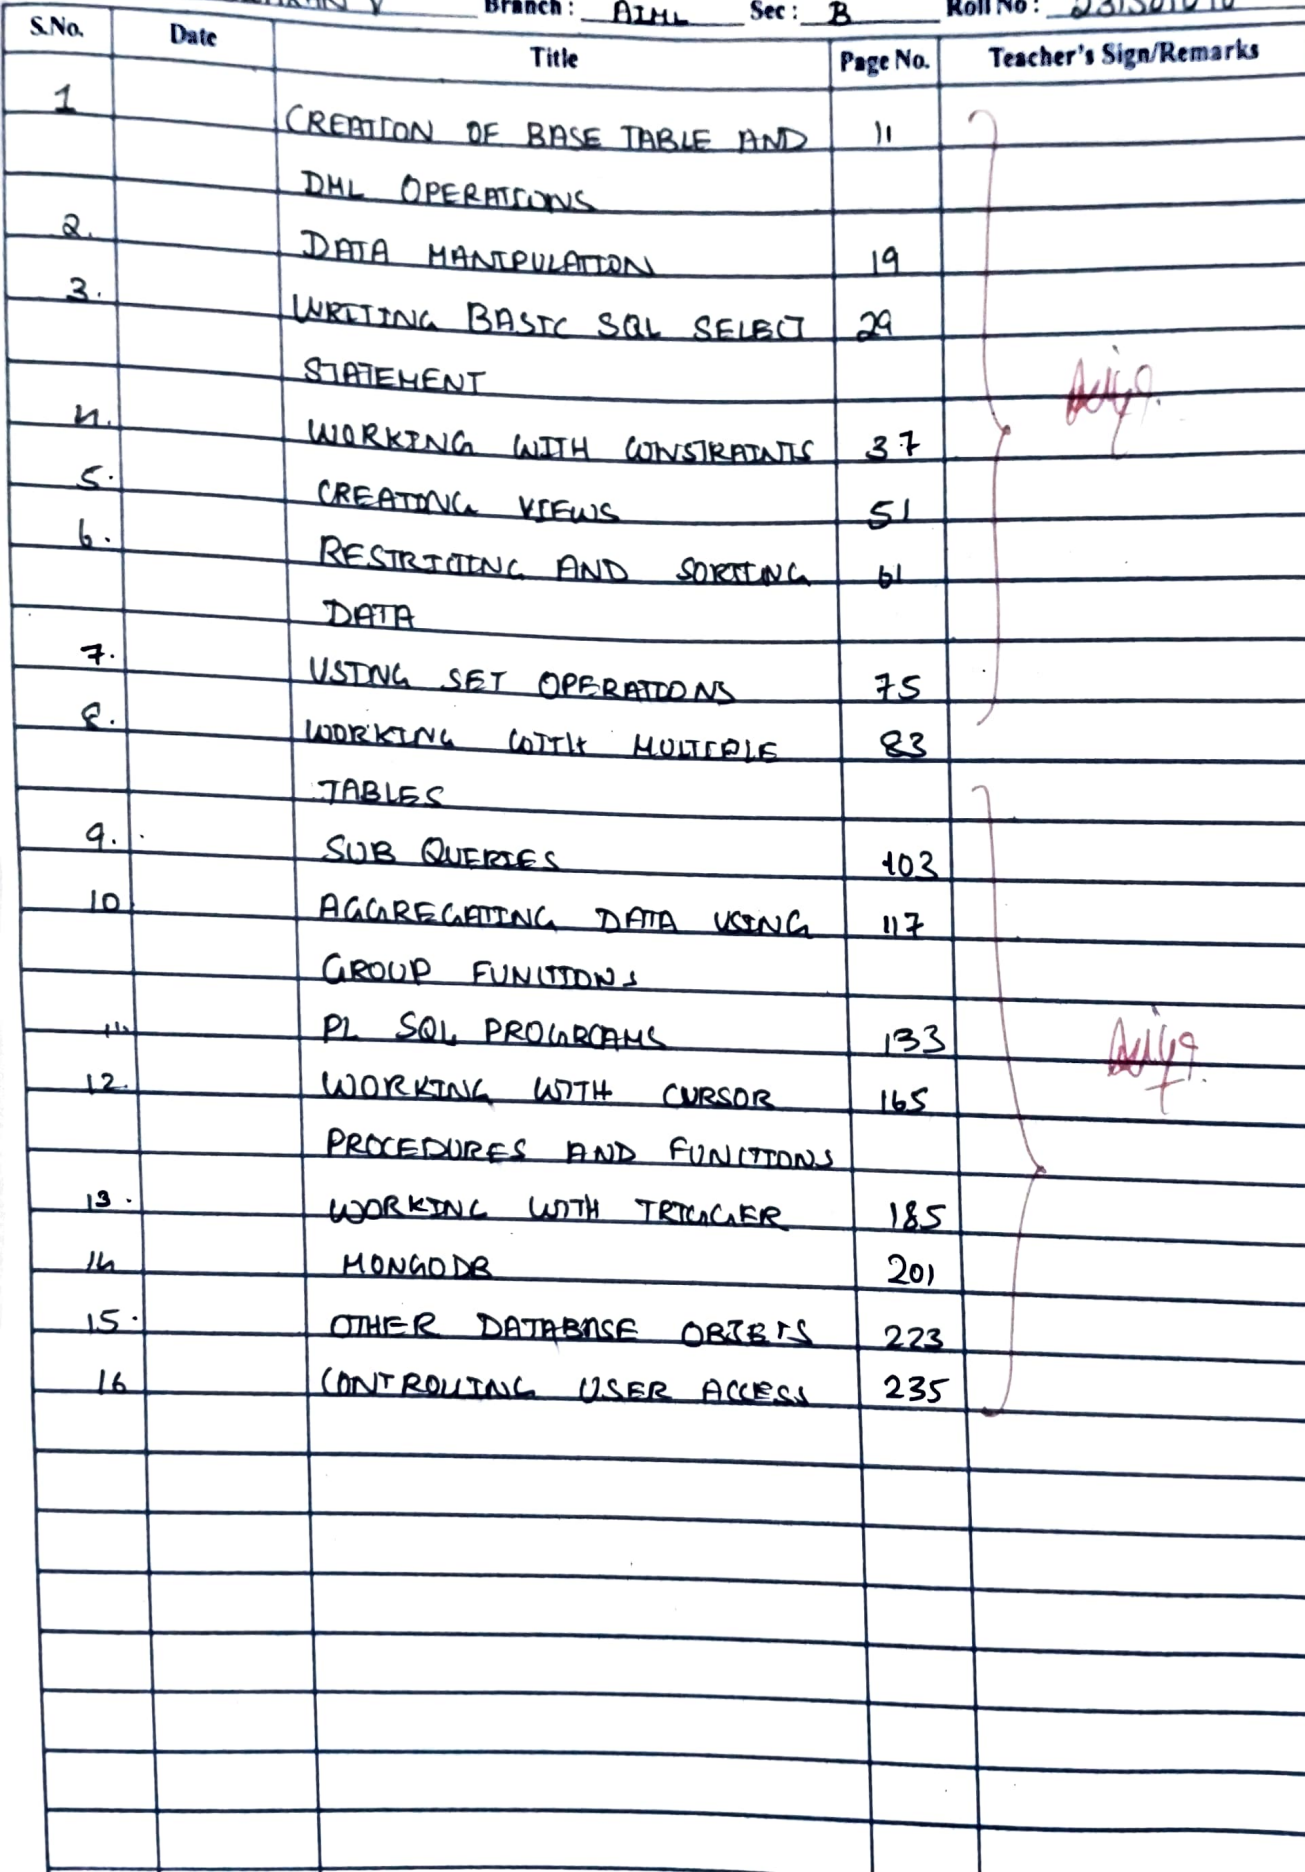 Branch : AIML Sec : B Roll No :
S.No. Date Title Page No. Teacher's Sign/Remarks
1 CREATION OF BASE TABLE AND 11
DML OPERATIONS
2. DATA MANIPULATION 19
3. WRITING BASIC SQL SELECT 29
STATEMENT
4. WORKING WITH CONSTRAINTS 37
5. CREATING VIEWS 51
6. RESTRICTING AND SORTING 61
DATA
7. USING SET OPERATIONS 75
8. WORKING WITH MULTIPLE 83
TABLES
9. SUB QUERIES 103
10 AGGREGATING DATA USING 117
GROUP FUNCTIONS
11. PL SQL PROGRAMS 133
12. WORKING WITH CURSOR 165
PROCEDURES AND FUNCTIONS
13. WORKING WITH TRIGGER 185
14 MONGODB 201
15. OTHER DATABASE OBJETS 223
16 CONTROLLING USER ACCESS 235